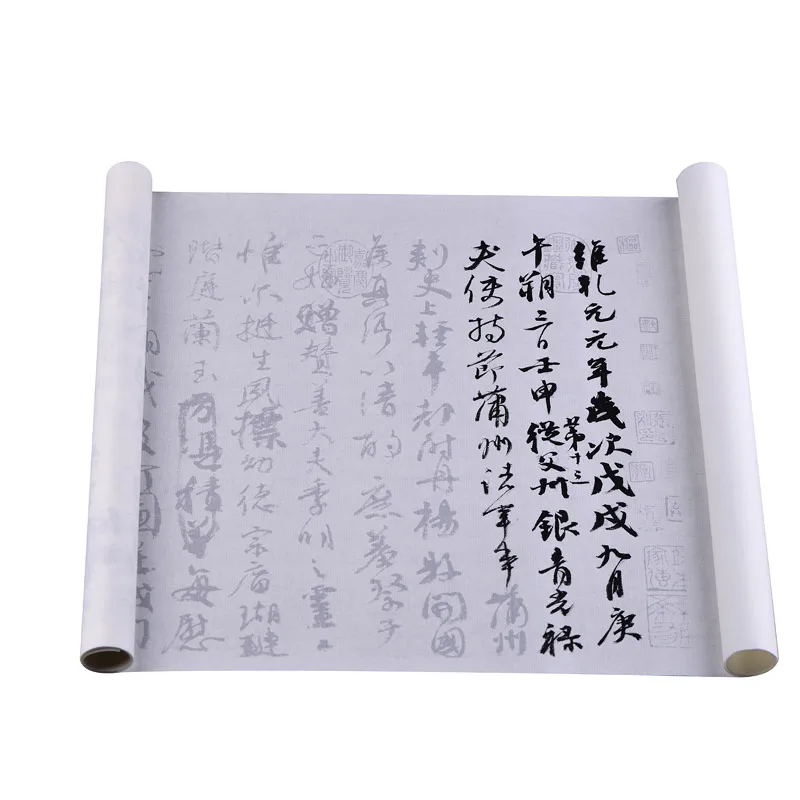 維乾元元年歲次戊戌九月庚
午朔三日壬申第十三從父銀青光祿
夫使持節蒲州諸軍事蒲州
刺史上輕車都尉丹楊縣開國
侯真卿以清酌庶羞祭于
亡姪贈贊善大夫季明之靈
惟爾挺生夙標幼德宗廟瑚璉
階庭蘭玉方憑積善每慰